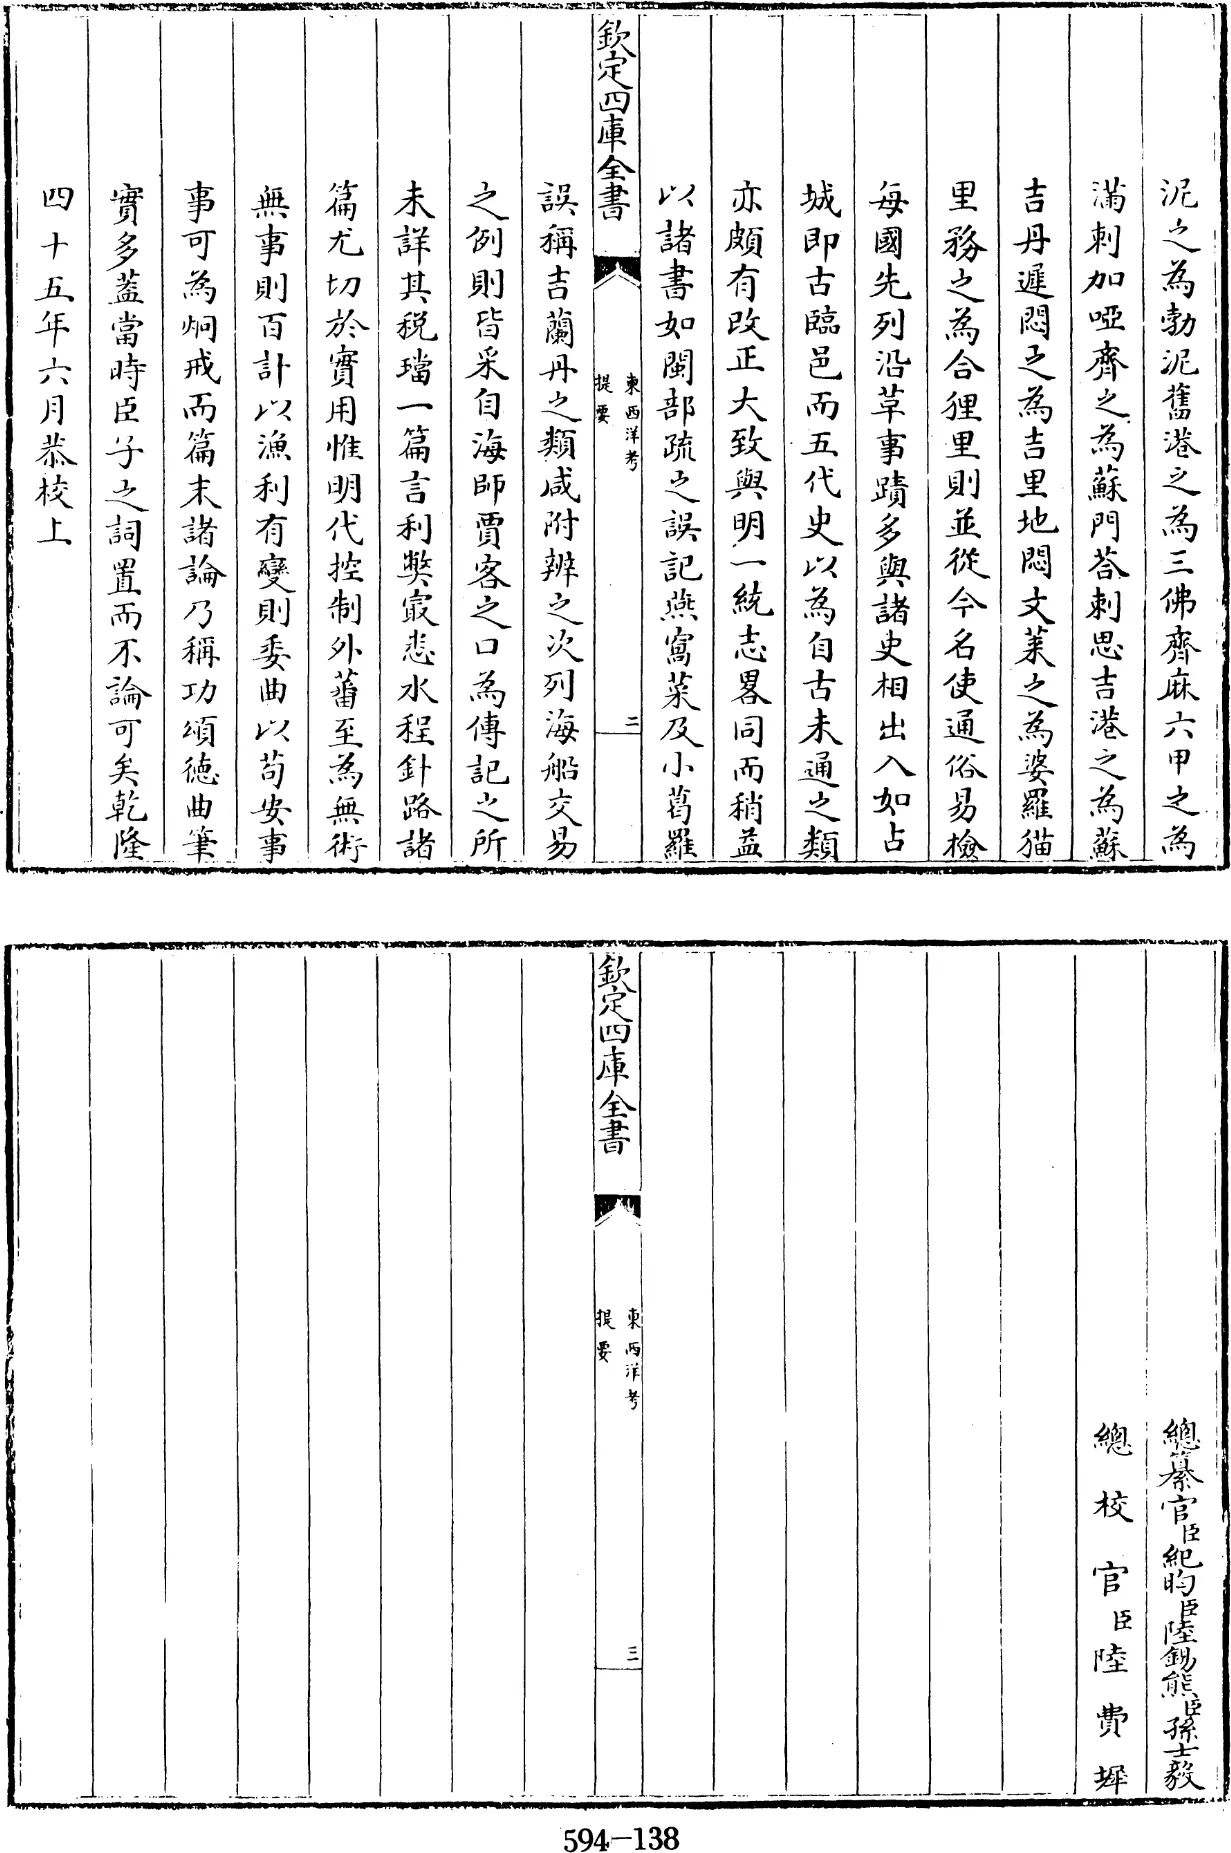 泥之為勃泥舊港之為三佛齊麻六甲之為
滿剌加啞齊之為蘇門荅剌思吉港之為蘇
吉丹遲悶之為吉里地悶文萊之為婆羅貓
里務之為合狸里則並從今名使通俗易檢
每國先列沿革事蹟多與諸史相出入如占
城即古臨邑而五代史以為自古未通之類
亦頗有改正大致與明一統志畧同而稍益
以諸書如閩部疏之誤記燕窩菜及小葛羅
欽定四庫全書
東西洋考
提要
二
誤稱吉蘭丹之類咸附辨之次列海船交易
之例則皆采自海師賈客之口為傳記之所
未詳其税璫一篇言利弊最悉水程針路諸
篇尤切於實用惟明代控制外蕃至為無術
無事則百計以漁利有變則委曲以苟安事
事可為炯戒而篇末諸論乃稱功頌德曲筆
實多蓋當時臣子之詞置而不論可矣乾隆
四十五年六月恭校上
總纂官臣紀昀臣陸錫熊臣孫士毅
總校官臣陸費墀
欽定四庫全書
東西洋考
提要
三
594-138